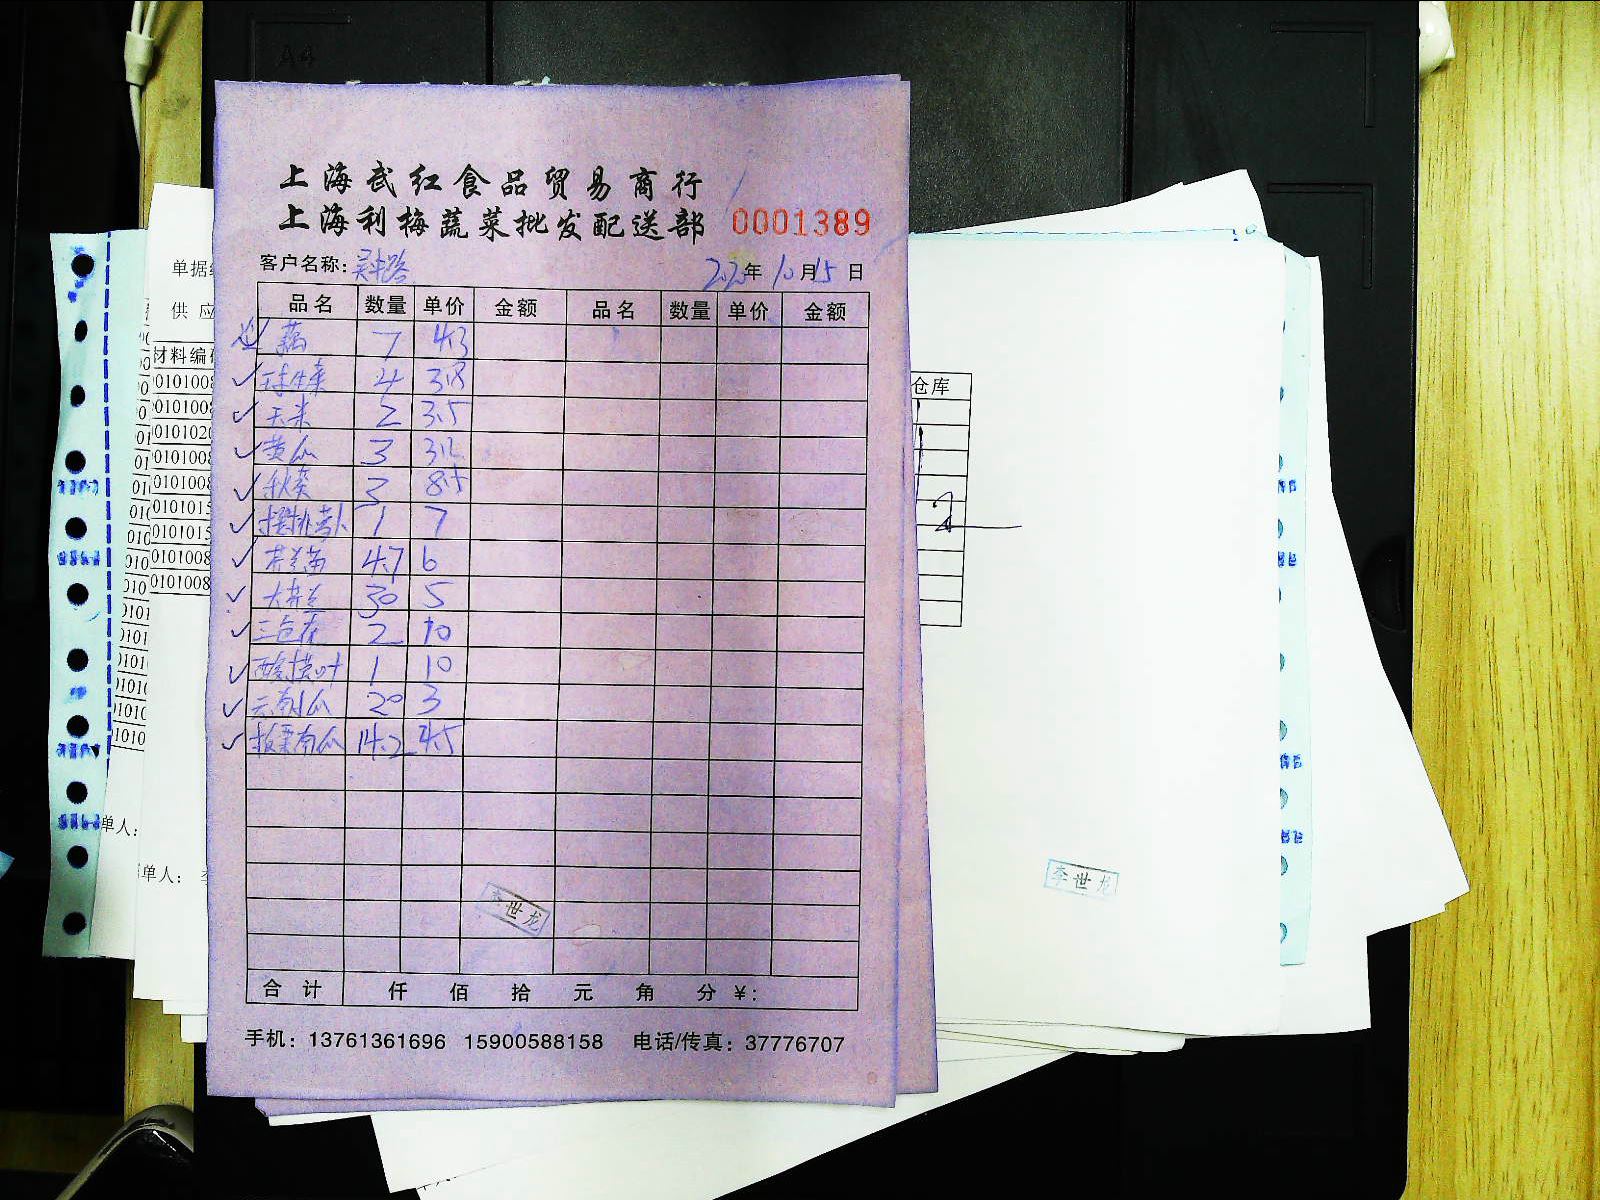 A4
上海武红食品贸易商行
上海利梅蔬菜批发配送部 0001389
客户名称:吴中路 2020年10月15日
品名 数量 单价 金额 品名 数量 单价 金额
藕 7 4.3
球生菜 4 3.8
玉米 2 3.5
黄瓜 3 3.2
秋葵 3 8.5
樱桃萝卜 1 7
芥兰苗 4.7 6
大芥兰 30 5
三色花 2 10
酸模叶 1 10
云南小瓜 20 3
板栗南瓜 14.2 4.5
合计 仟 佰 拾 元 角 分 ¥:
手机：13761361696 15900588158 电话/传真：37776707
李世龙
单据
供应
材料编
0101008
0101008
0101020
0101008
0101008
0101015
0101015
0101008
0101008
单人:
单人:
仓库
李世龙